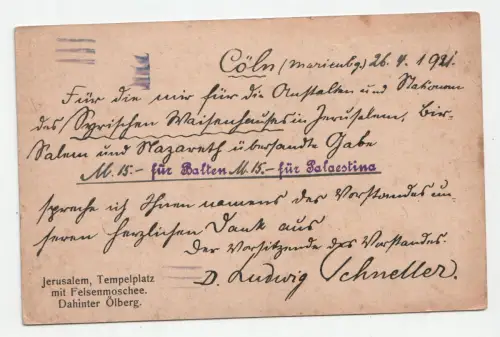 Cöln (Marienbg.) 26.4.1921.
Für die mir für die Anstalten und Stationen
des Syrischen Waisenhauses in Jerusalem, Bir-
Salem und Nazareth übersandte Gabe
M. 15.- für Balten M. 15.- für Palaestina
spreche ich Ihnen namens des Vorstandes un-
seren herzlichen Dank aus
Der Vorsitzende des Vorstandes.
D. Ludwig Schneller.
Jerusalem, Tempelplatz
mit Felsenmoschee.
Dahinter Ölberg.